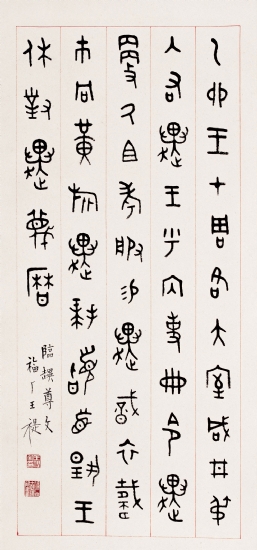 乙卯王才周各大室咸井叔
入右趩王乎內史冊令趩
更厥且考服易趩戠衣載
巿冋黃旂趩拜稽首揚王
休對趩蔑曆
臨趩尊文
福厂王禔